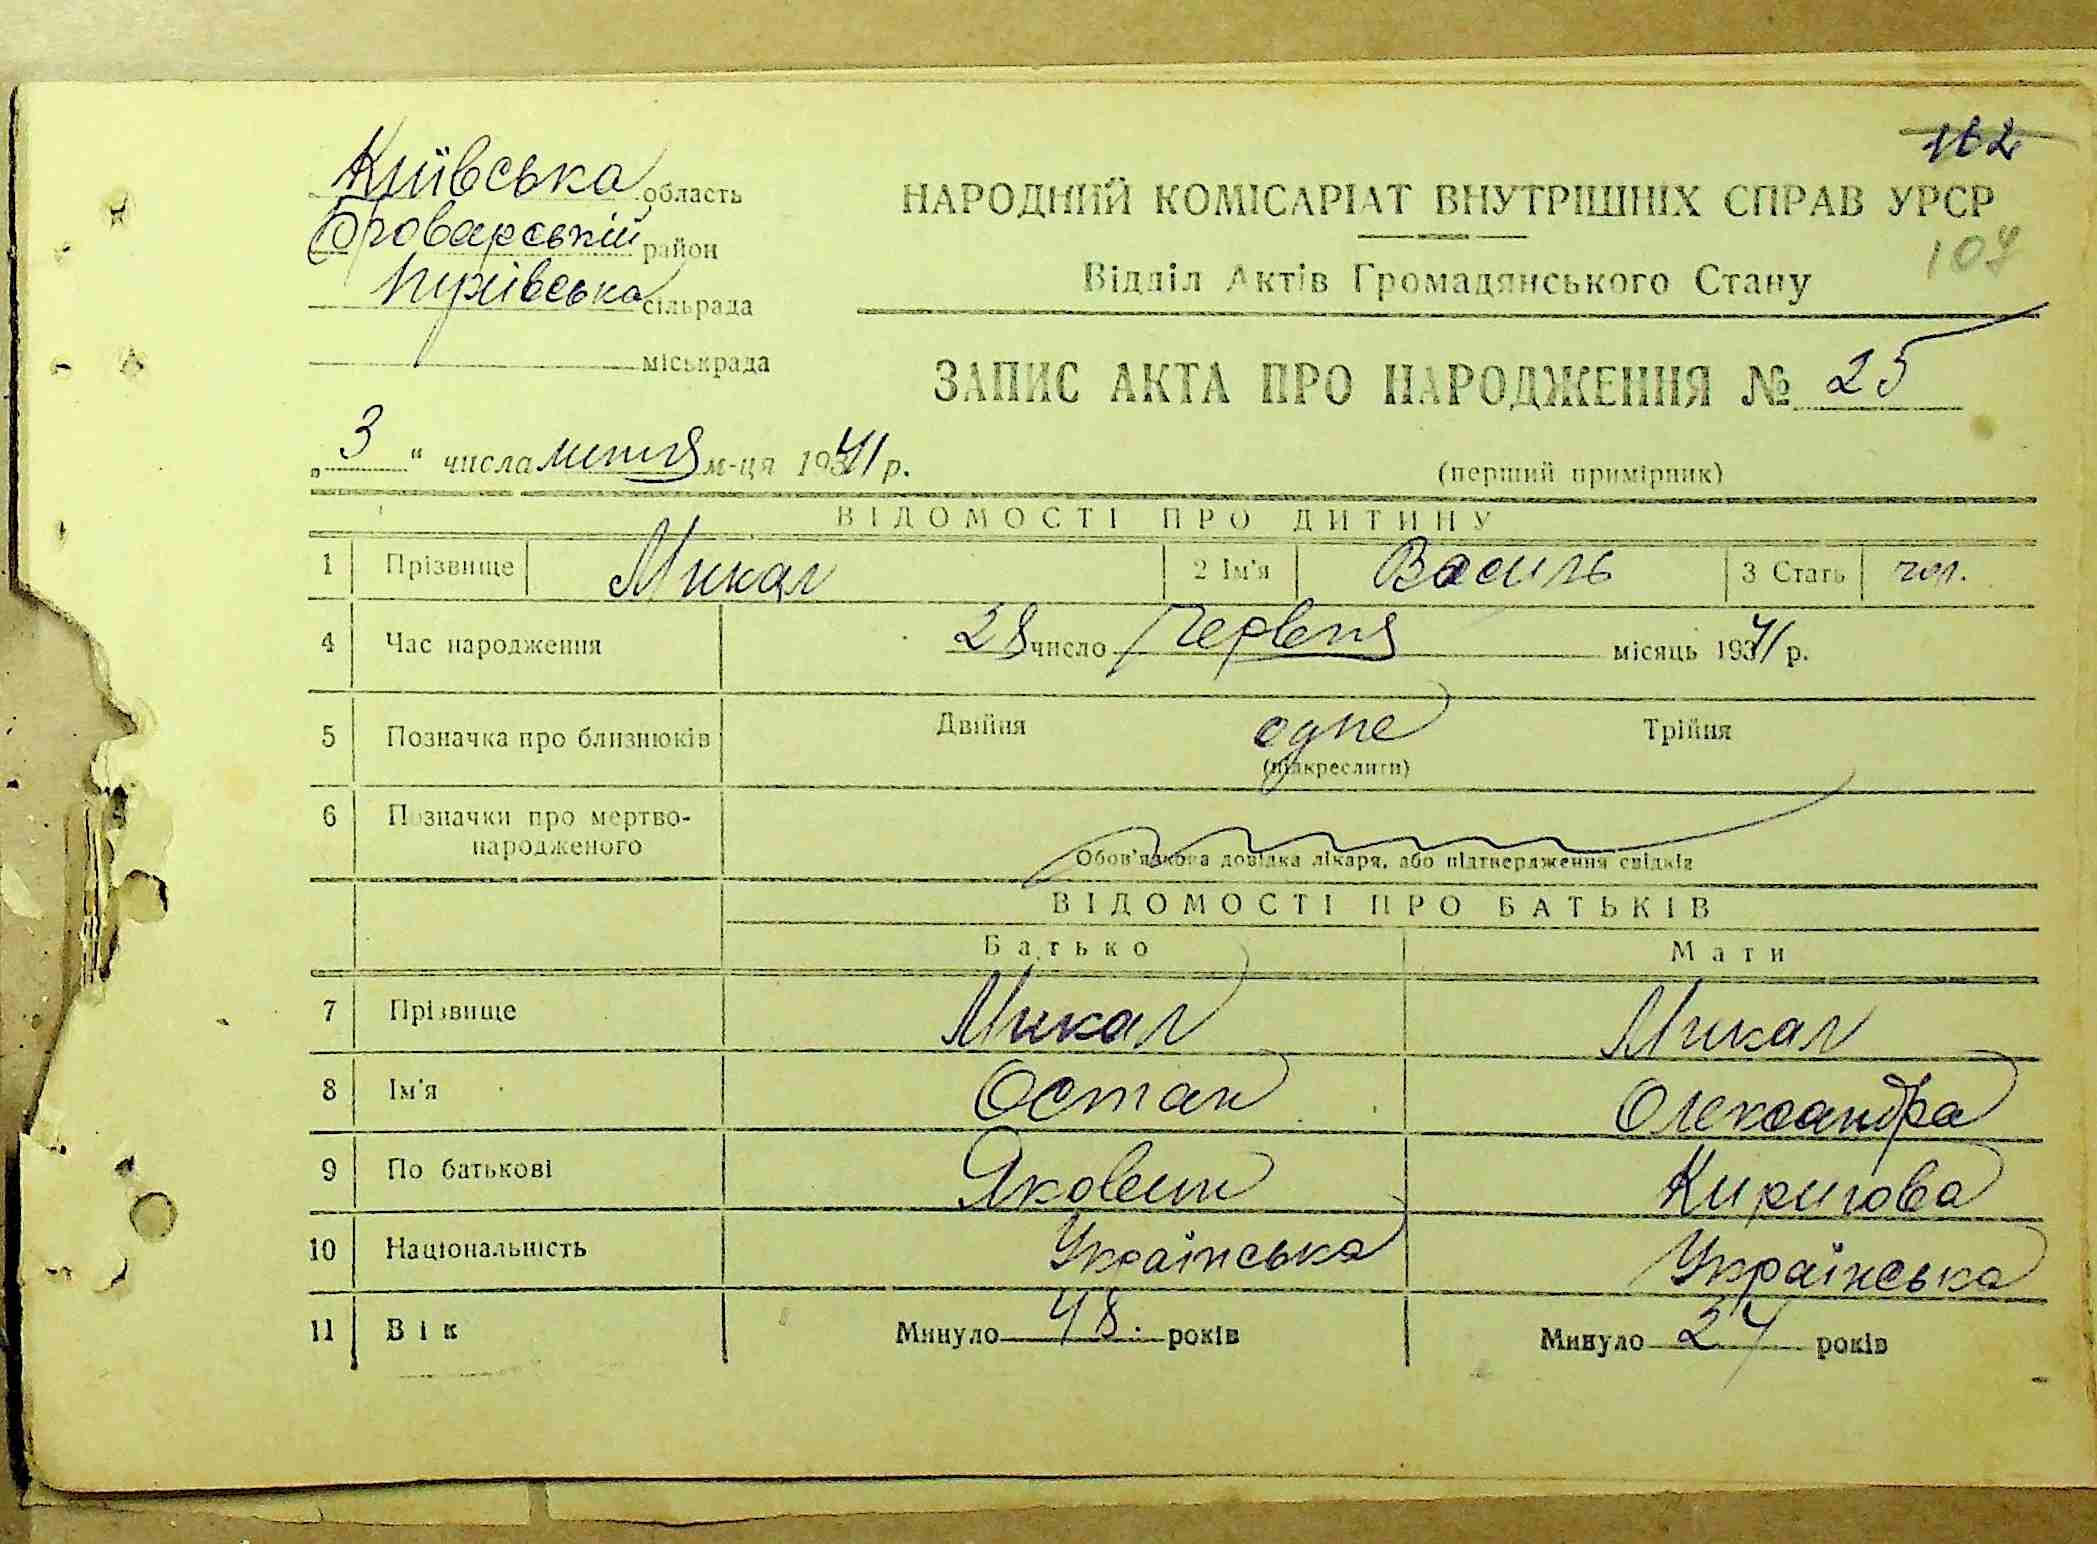 162
Київська область
Броварській район
Пухівська сільрада
міськрада
НАРОДНИЙ КОМІСАРІАТ ВНУТРІШНІХ СПРАВ УРСР
Відділ Актів Громадянського Стану
ЗАПИС АКТА ПРО НАРОДЖЕННЯ № 25
„3“ числа липня м-ця 1941 р.
(перший примірник)
ВІДОМОСТІ ПРО ДИТИНУ
1 Прізвище Микал 2 Ім'я Василь 3 Стать чол.
4 Час народження 28 число Червня місяць 1941 р.
5 Позначка про близнюків Двійня одне Трійня
(підкреслити)
6 Позначки про мертво-
народженого
Обов'язкова довідка лікаря, або підтвердження свідків
ВІДОМОСТІ ПРО БАТЬКІВ
Батько Мати
7 Прізвище Микал Микал
8 Ім'я Остап Олександра
9 По батькові Якович Кирилова
10 Національність Українська Українська
11 Вік Минуло 48. років Минуло 24 років